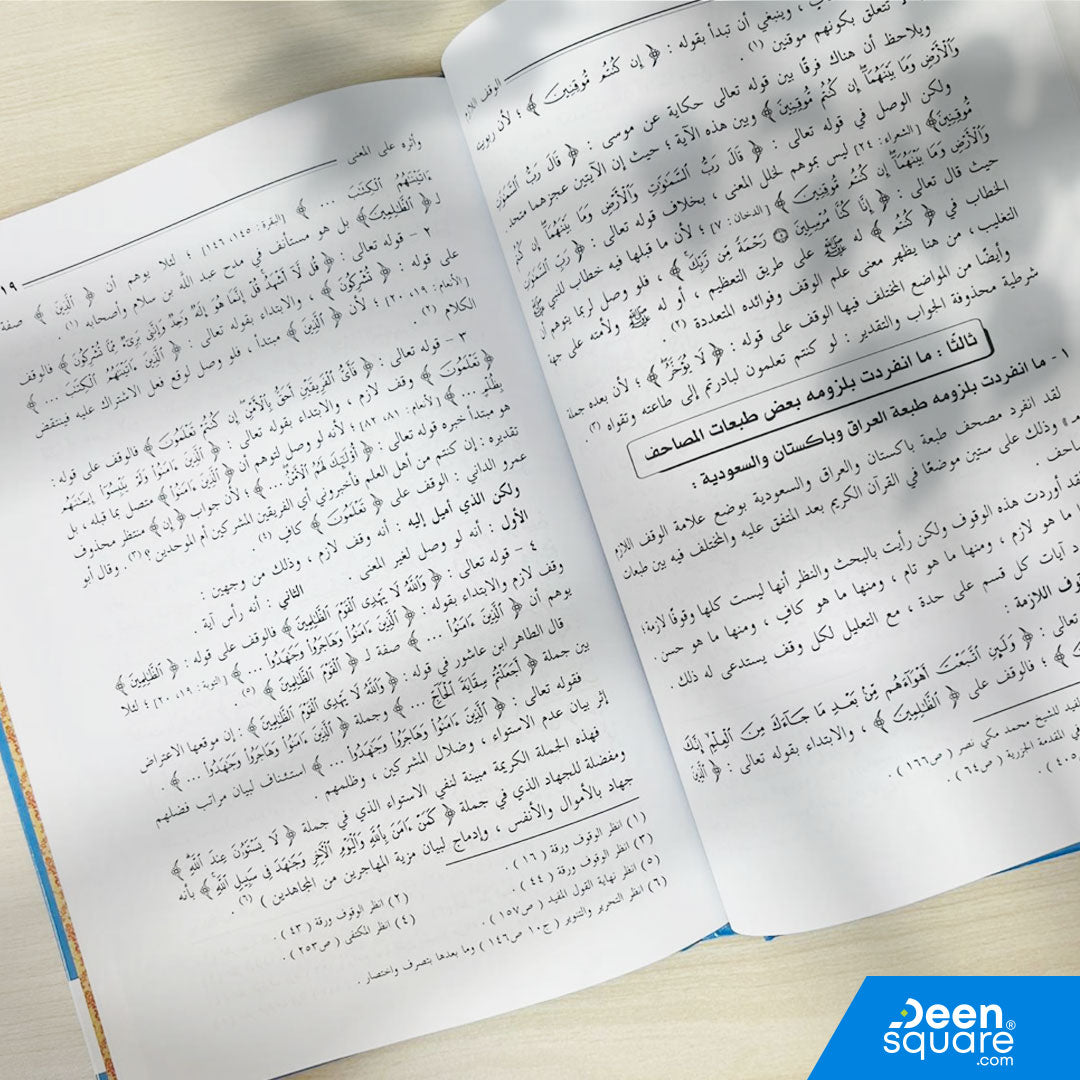 الوقف اللازم
لا تتعلق بكونهم موقنين (١)
، وينبغي أن تبدأ بقوله : ﴿ إِن كُنتُم مُّوقِنِينَ ﴾ ؛ لأن ربوب
ويلاحظ أن هناك فرقًا بين قوله تعالى حكاية عن موسى : ﴿ قَالَ رَبُّ السَّمَوَتِ
وَالْأَرْضِ وَمَا بَيْنَهُمَا إِن كُنتُم مُّوقِنِينَ ﴾ وبين هذه الآية ؛ حيث إن الآيتين عجزهما متحد
ولكن الوصل في قوله تعالى : ﴿ قَالَ رَبُّ السَّمَوَتِ وَالْأَرْضِ وَمَا بَيْنَهُمَا إِن كُنتُم
مُّوقِنِينَ ﴾ [الشعراء : ٢٤] ليس بموهم لخلل المعنى ، بخلاف قوله تعالى : ﴿ رَبِّ السَّمَوَتِ
وَالْأَرْضِ وَمَا بَيْنَهُمَا إِن كُنتُم مُّوقِنِينَ ﴾ [الدخان : ٧] ؛ لأن ما قبلها فيه خطاب للنبي ﷺ
حيث قال تعالى : ﴿ إِنَّا كُنَّا مُرْسِلِينَ ۝ رَحْمَةً مِّن رَّبِّكَ ﴾ ، فلو وصل لربما يتوهم أن
الخطاب في ﴿ كُنتُم ﴾ له ﷺ على طريق التعظيم ، أو له ﷺ ولأمته على جهة
التغليب ، من هنا يظهر معنى علم الوقف وفوائده المتعددة (٢) .
وأيضًا من المواضع المختلف فيها الوقف على قوله : ﴿ لَا يُؤَخَّرُ ﴾ ؛ لأن بعده جملة
شرطية محذوفة الجواب والتقدير : لو كنتم تعلمون لبادرتم إلى طاعته وتقواه (٣) .
ثالثًا : ما انفردت بلزومه بعض طبعات المصاحف
١ - ما انفردت بلزومه طبعة العراق وباكستان والسعودية :
لقد انفرد مصحف طبعة باكستان والعراق والسعودية بوضع علامة الوقف اللازم
« مـ » وذلك على ستين موضعًا في القرآن الكريم بعد المتفق عليه والمختلف فيه بين طبعات
صاحف .
قد أوردت هذه الوقوف ولكن رأيت بالبحث والنظر أنها ليست كلها وقوفًا لازمة؛
ما هو لازم ، ومنها ما هو تام ، ومنها ما هو كاف ، ومنها ما هو حسن .
د آيات كل قسم على حدة ، مع التعليل لكل وقف يستدعى له ذلك .
قوف اللازمة :
تعالى : ﴿ وَلَئِنِ اتَّبَعْتَ أَهْوَاءَهُم مِّنْ بَعْدِ مَا جَاءَكَ مِنَ الْعِلْمِ إِنَّكَ
﴾ ؛ فالوقف على ﴿ الظَّلِمِينَ ﴾ ، والابتداء بقوله تعالى : ﴿ الَّذِينَ
فيد للشيخ محمد مكي نصر (ص١٦٦) .
في المقدمة الجزرية (ص٦٤) .
٤٠٥) .
وأثره على المعنى
١٩
ءَاتَيْنَهُمُ الْكِتَبَ ... ﴾ [البقرة : ١٤٥، ١٤٦] ؛ لئلا يوهم أن ﴿ الَّذِينَ ﴾ صفة
لـ ﴿ الظَّلِمِينَ ﴾ بل هو مستأنف في مدح عبد الله بن سلام وأصحابه (١) .
٢ - قوله تعالى : ﴿ قُل لَّا أَشْهَدُ قُلْ إِنَّمَا هُوَ إِلَهٌ وَحِدٌ وَإِنَّنِي بَرِيءٌ مِّمَّا تُشْرِكُونَ ﴾ فالوقف
على قوله : ﴿ تُشْرِكُونَ ﴾ ، والابتداء بقوله تعالى : ﴿ الَّذِينَ ءَاتَيْنَهُمُ الْكِتَبَ ... ﴾
[الأنعام : ١٩، ٢٠] ؛ لأن ﴿ الَّذِينَ ﴾ مبتدأ ، فلو وصل لوقع فعل الاشتراك عليه فينتقض
الكلام (٢) .
٣ - قوله تعالى : ﴿ فَأَيُّ الْفَرِيقَيْنِ أَحَقُّ بِالْأَمْنِ إِن كُنتُمْ تَعْلَمُونَ ﴾ فالوقف على قوله :
﴿ تَعْلَمُونَ ﴾ وقف لازم ، والابتداء بقوله تعالى : ﴿ الَّذِينَ ءَامَنُوا وَلَمْ يَلْبِسُوا إِيمَنَهُم
بِظُلْمٍ ... ﴾ [الأنعام : ٨١، ٨٢] ؛ لأنه لو وصل لتوهم أن ﴿ الَّذِينَ ءَامَنُوا ﴾ متصل بما قبله ، بل
هو مبتدأ خبره قوله تعالى : ﴿ أُولَئِكَ لَهُمُ الْأَمْنُ ... ﴾ ؛ لأن جواب ﴿ إِن ﴾ منتظر محذوف
تقديره : إن كنتم من أهل العلم فأخبروني أي الفريقين المشركين أم الموحدين ؟ (٣) . وقال أبو
عمرو الداني : الوقف على ﴿ تَعْلَمُونَ ﴾ كاف (٤) .
ولكن الذي أميل إليه : أنه وقف لازم ، وذلك من وجهين :
الأول : أنه لو وصل لغير المعنى . الثاني : أنه رأس آية .
٤ - قوله تعالى : ﴿ وَاللَّهُ لَا يَهْدِي الْقَوْمَ الظَّلِمِينَ ﴾ فالوقف على قوله : ﴿ الظَّلِمِينَ ﴾
وقف لازم والابتداء بقوله : ﴿ الَّذِينَ ءَامَنُوا وَهَاجَرُوا وَجَهَدُوا ... ﴾ [التوبة : ١٩، ٢٠] ؛ لئلا
يوهم أن ﴿ الَّذِينَ ءَامَنُوا ... ﴾ صفة لـ ﴿ الْقَوْمَ الظَّلِمِينَ ﴾ (٥) .
قال الطاهر ابن عاشور في قوله : ﴿ وَاللَّهُ لَا يَهْدِي الْقَوْمَ الظَّلِمِينَ ﴾ : إن موقعها الاعتراض
بين جملة ﴿ أَجَعَلْتُمْ سِقَايَةَ الْحَاجِّ ... ﴾ وجملة ﴿ الَّذِينَ ءَامَنُوا وَهَاجَرُوا وَجَهَدُوا ... ﴾ .
فقوله تعالى : ﴿ الَّذِينَ ءَامَنُوا وَهَاجَرُوا وَجَهَدُوا ... ﴾ استئناف لبيان مراتب فضلهم
إثر بيان عدم الاستواء ، وضلال المشركين ، وظلمهم .
فهذه الجملة الكريمة مبينة لنفي الاستواء الذي في جملة ﴿ لَا يَسْتَوُونَ عِندَ اللَّهِ ﴾
ومفضلة للجهاد الذي في جملة ﴿ كَمَنْ ءَامَنَ بِاللَّهِ وَالْيَوْمِ الْآخِرِ وَجَهَدَ فِي سَبِيلِ اللَّهِ ﴾ بأنه
جهاد بالأموال والأنفس ، وإدماج لبيان مزية المهاجرين من المجاهدين ) (٦) .
(١) انظر الوقوف ورقة (١٦) . (٢) انظر الوقوف ورقة (٤٣) .
(٣) انظر الوقوف ورقة (٤٤) . (٤) انظر المكتفى (ص٢٥٣) .
(٥) انظر نهاية القول المفيد (ص١٥٧) .
(٦) انظر التحرير والتنوير (ج١٠ ص١٤٦) وما بعدها بتصرف واختصار .
Deen
square®
.com